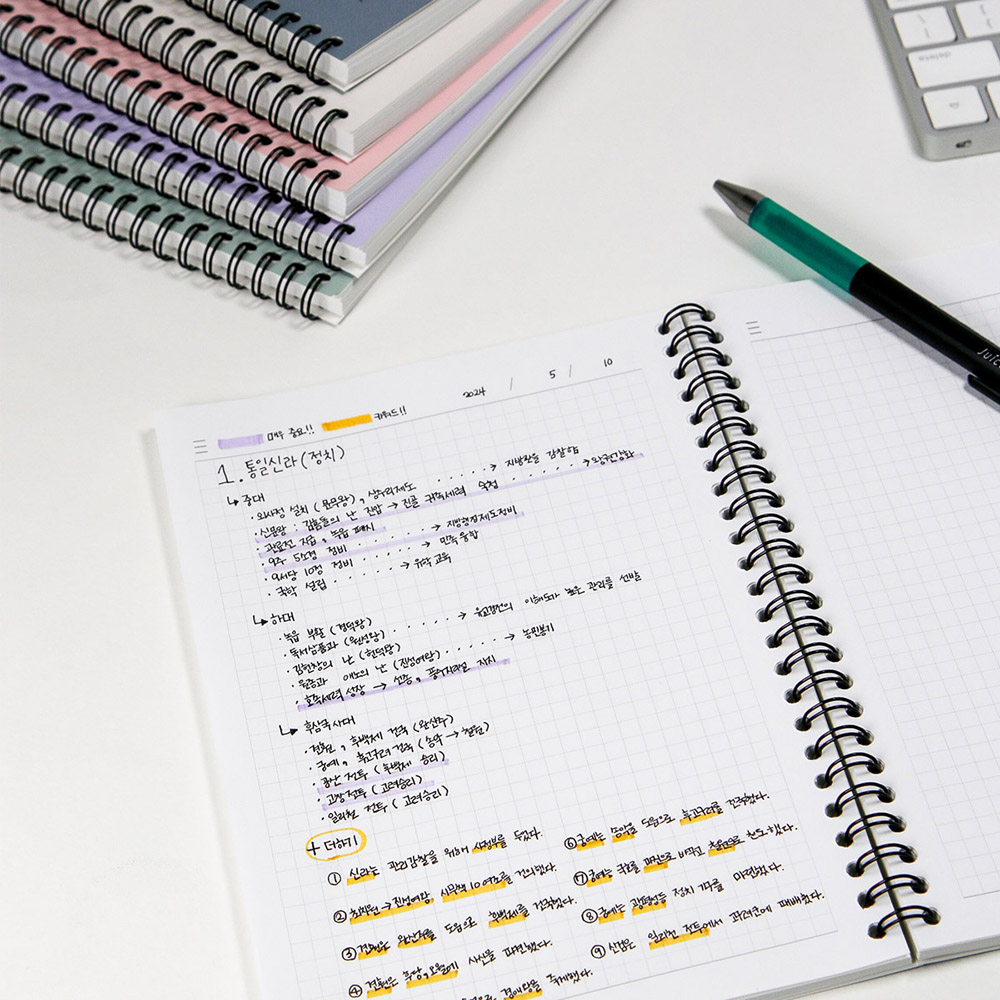 delete
Juice
2024 / 5 / 10
매우 중요!! 키워드!!
1. 통일신라(정치)
↳ 중대
· 외사정 설치 (문무왕), 상수리제도 ······→ 지방관을 감찰함
· 신문왕 : 김흠돌의 난 진압 → 진골 귀족세력 숙청 ······→ 왕권강화
· 관료전 지급, 녹읍 폐지
· 9주 5소경 정비 ······→ 지방행정제도정비
· 9서당 10정 정비 ······→ 민족융합
· 국학 설립 ······→ 유학 교육
↳ 하대
· 녹읍 부활 (경덕왕)
· 독서삼품과 (원성왕) ······→ 유교경전의 이해도가 높은 관리를 선발
· 김헌창의 난 (헌덕왕)
· 원종과 애노의 난 (진성여왕) ······→ 농민봉기
· 호족세력 성장 → 선종, 풍수지리설 지지
↳ 후삼국시대
· 견훤, 후백제 건국 (완산주)
· 궁예, 후고구려 건국 (송악 → 철원)
· 공산 전투 (후백제 승리)
· 고창전투 (고려승리)
· 일리천 전투 (고려승리)
+ 더하기
① 신라는 관리감찰을 위해 사정부를 두었다.
② 최치원 → 진성여왕 시무책 10여조를 건의했다.
③ 견훤은 완산주를 도읍으로 후백제를 건국했다.
④ 견훤은 후당, 오월에 사신을 파견했다.
경애왕을 죽게했다.
⑥ 궁예는 송악을 도읍으로 후고구려를 건국했다.
⑦ 궁예는 국호를 마진으로 바꾸고 철원으로 천도했다.
⑧ 궁예는 광평성등 정치 기구를 마련했다.
⑨ 신검은 일리천 전투에서 고려군에 패배했다.